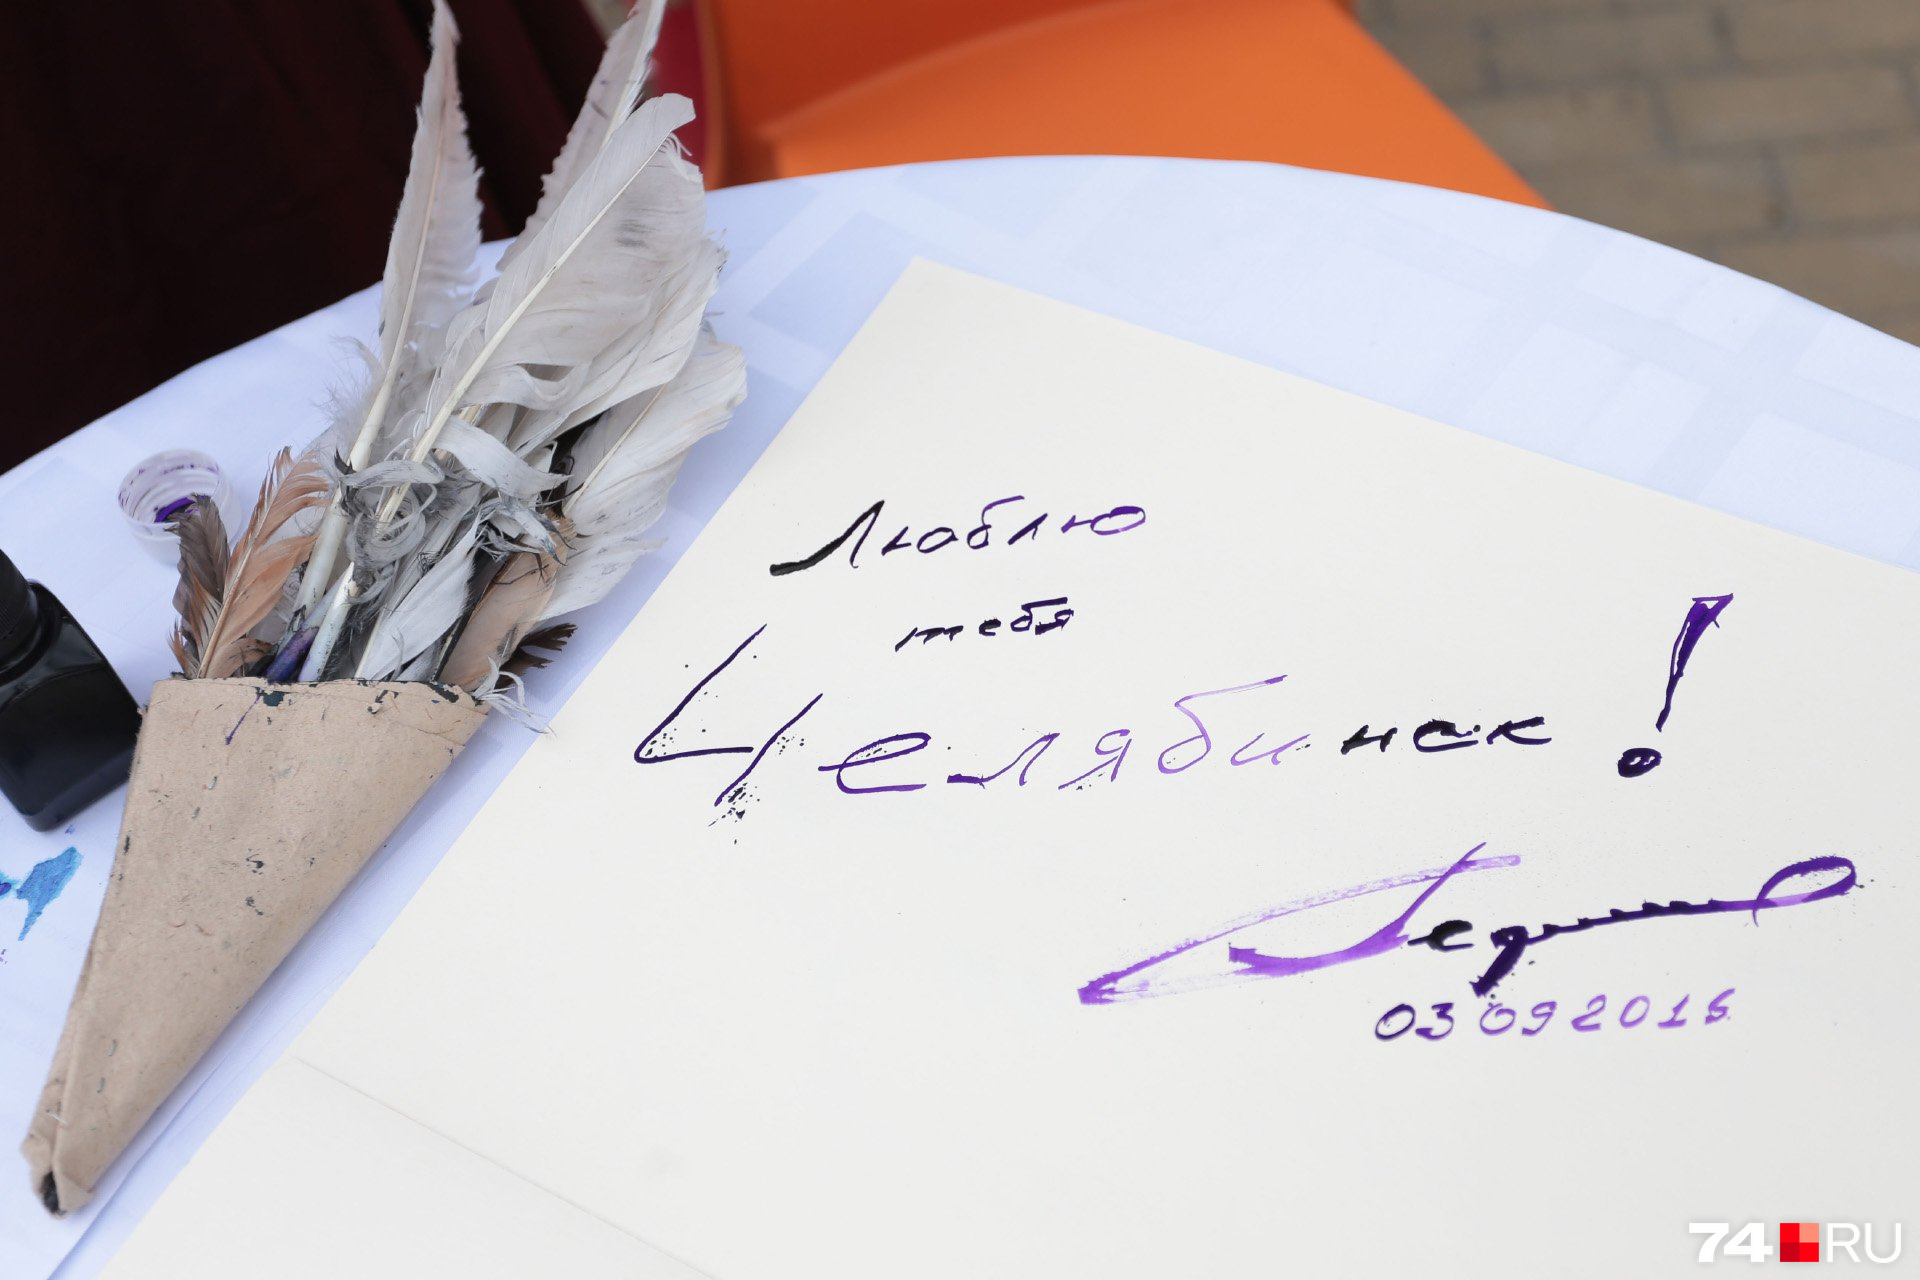 Люблю
тебя
Челябинск!
03 09 2018
74.RU